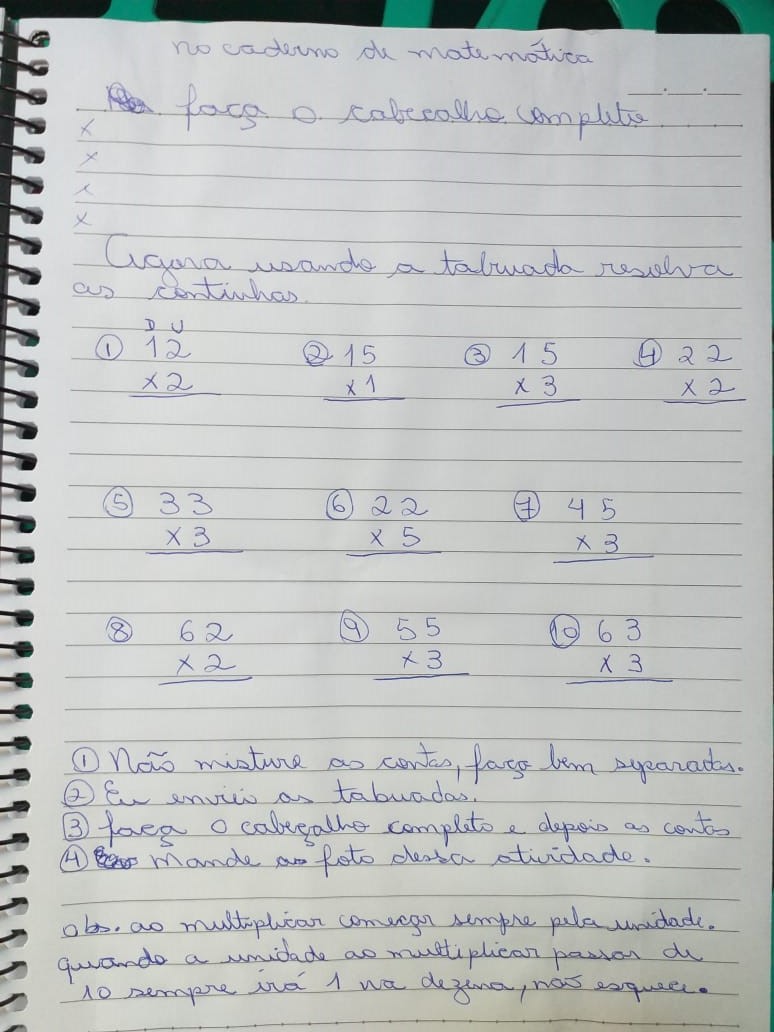 no caderno de matemática
__.__.__
faça o cabeçalho completo
x
x
x
x
Agora usando a tabuada resolva
as continhas.
D U
① 12 ② 15 ③ 15 ④ 22
x2 x1 x 3 x 2
⑤ 33 ⑥ 22 ⑦ 45
x 3 x 5 x 3
⑧ 62 ⑨ 55 ⑩ 63
x 2 x 3 x 3
① Não misture as contas, faça bem separadas.
② Eu enviei as tabuadas.
③ faça o cabeçalho completo e depois as contas
④ Mande a foto dessa atividade.
obs. ao multiplicar começar sempre pela unidade.
quando a unidade ao multiplicar passar de
10 sempre irá 1 na dezena, não esquece.